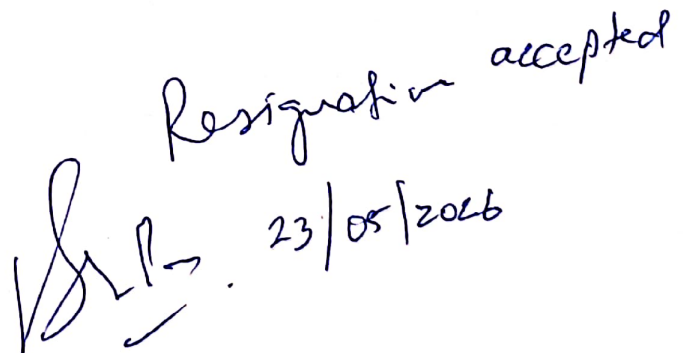 Resignation accepted
23/05/2026